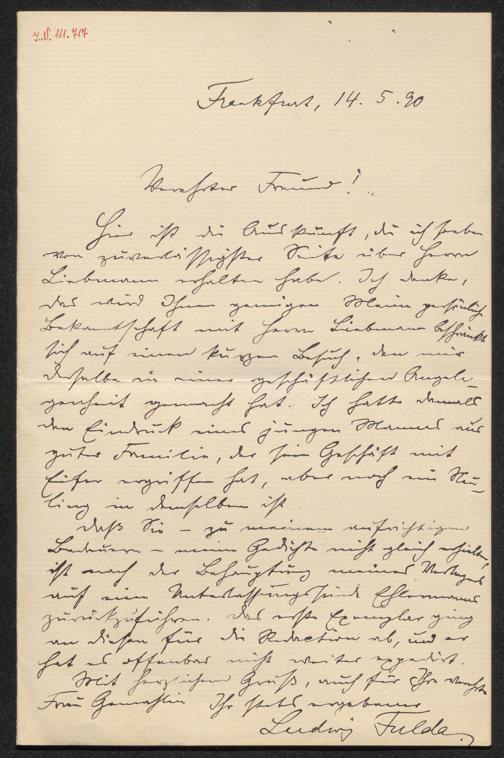 J.N. 111.717
Frankfurt, 14. 5. 90
Verehrter Freund!
Hier ist die Auskunft, die ich soeben
von zuverlässigster Seite über Herrn
Liebmann erhalten habe. Ich denke,
das wird Ihnen genügen. Meine persönliche
Bekanntschaft mit Herrn Liebmann beschränkt
sich auf einen kurzen Besuch, den mir
derselbe in einer geschäftlichen Angele-
genheit gemacht hat. Ich hatte damals
den Eindruck eines jungen Mannes aus
guter Familie, der sein Geschäft mit
Eifer ergriffen hat, aber noch ein Neu-
ling in demselben ist.
Daß Sie – zu meinem aufrichtigen
Bedauern – meine Gedichte nicht gleich erhielten,
ist nach der Behauptung meines Verlegers
auf eine Unterlassungssünde Ehlermanns
zurückzuführen. Das erste Exemplar ging
an diesen für die Redaction ab, und er
hat es offenbar nicht weiter expedirt.
Mit herzlichem Gruß, auch für Ihre verehrte
Frau Gemahlin Ihr stets ergebener
Ludwig Fulda.